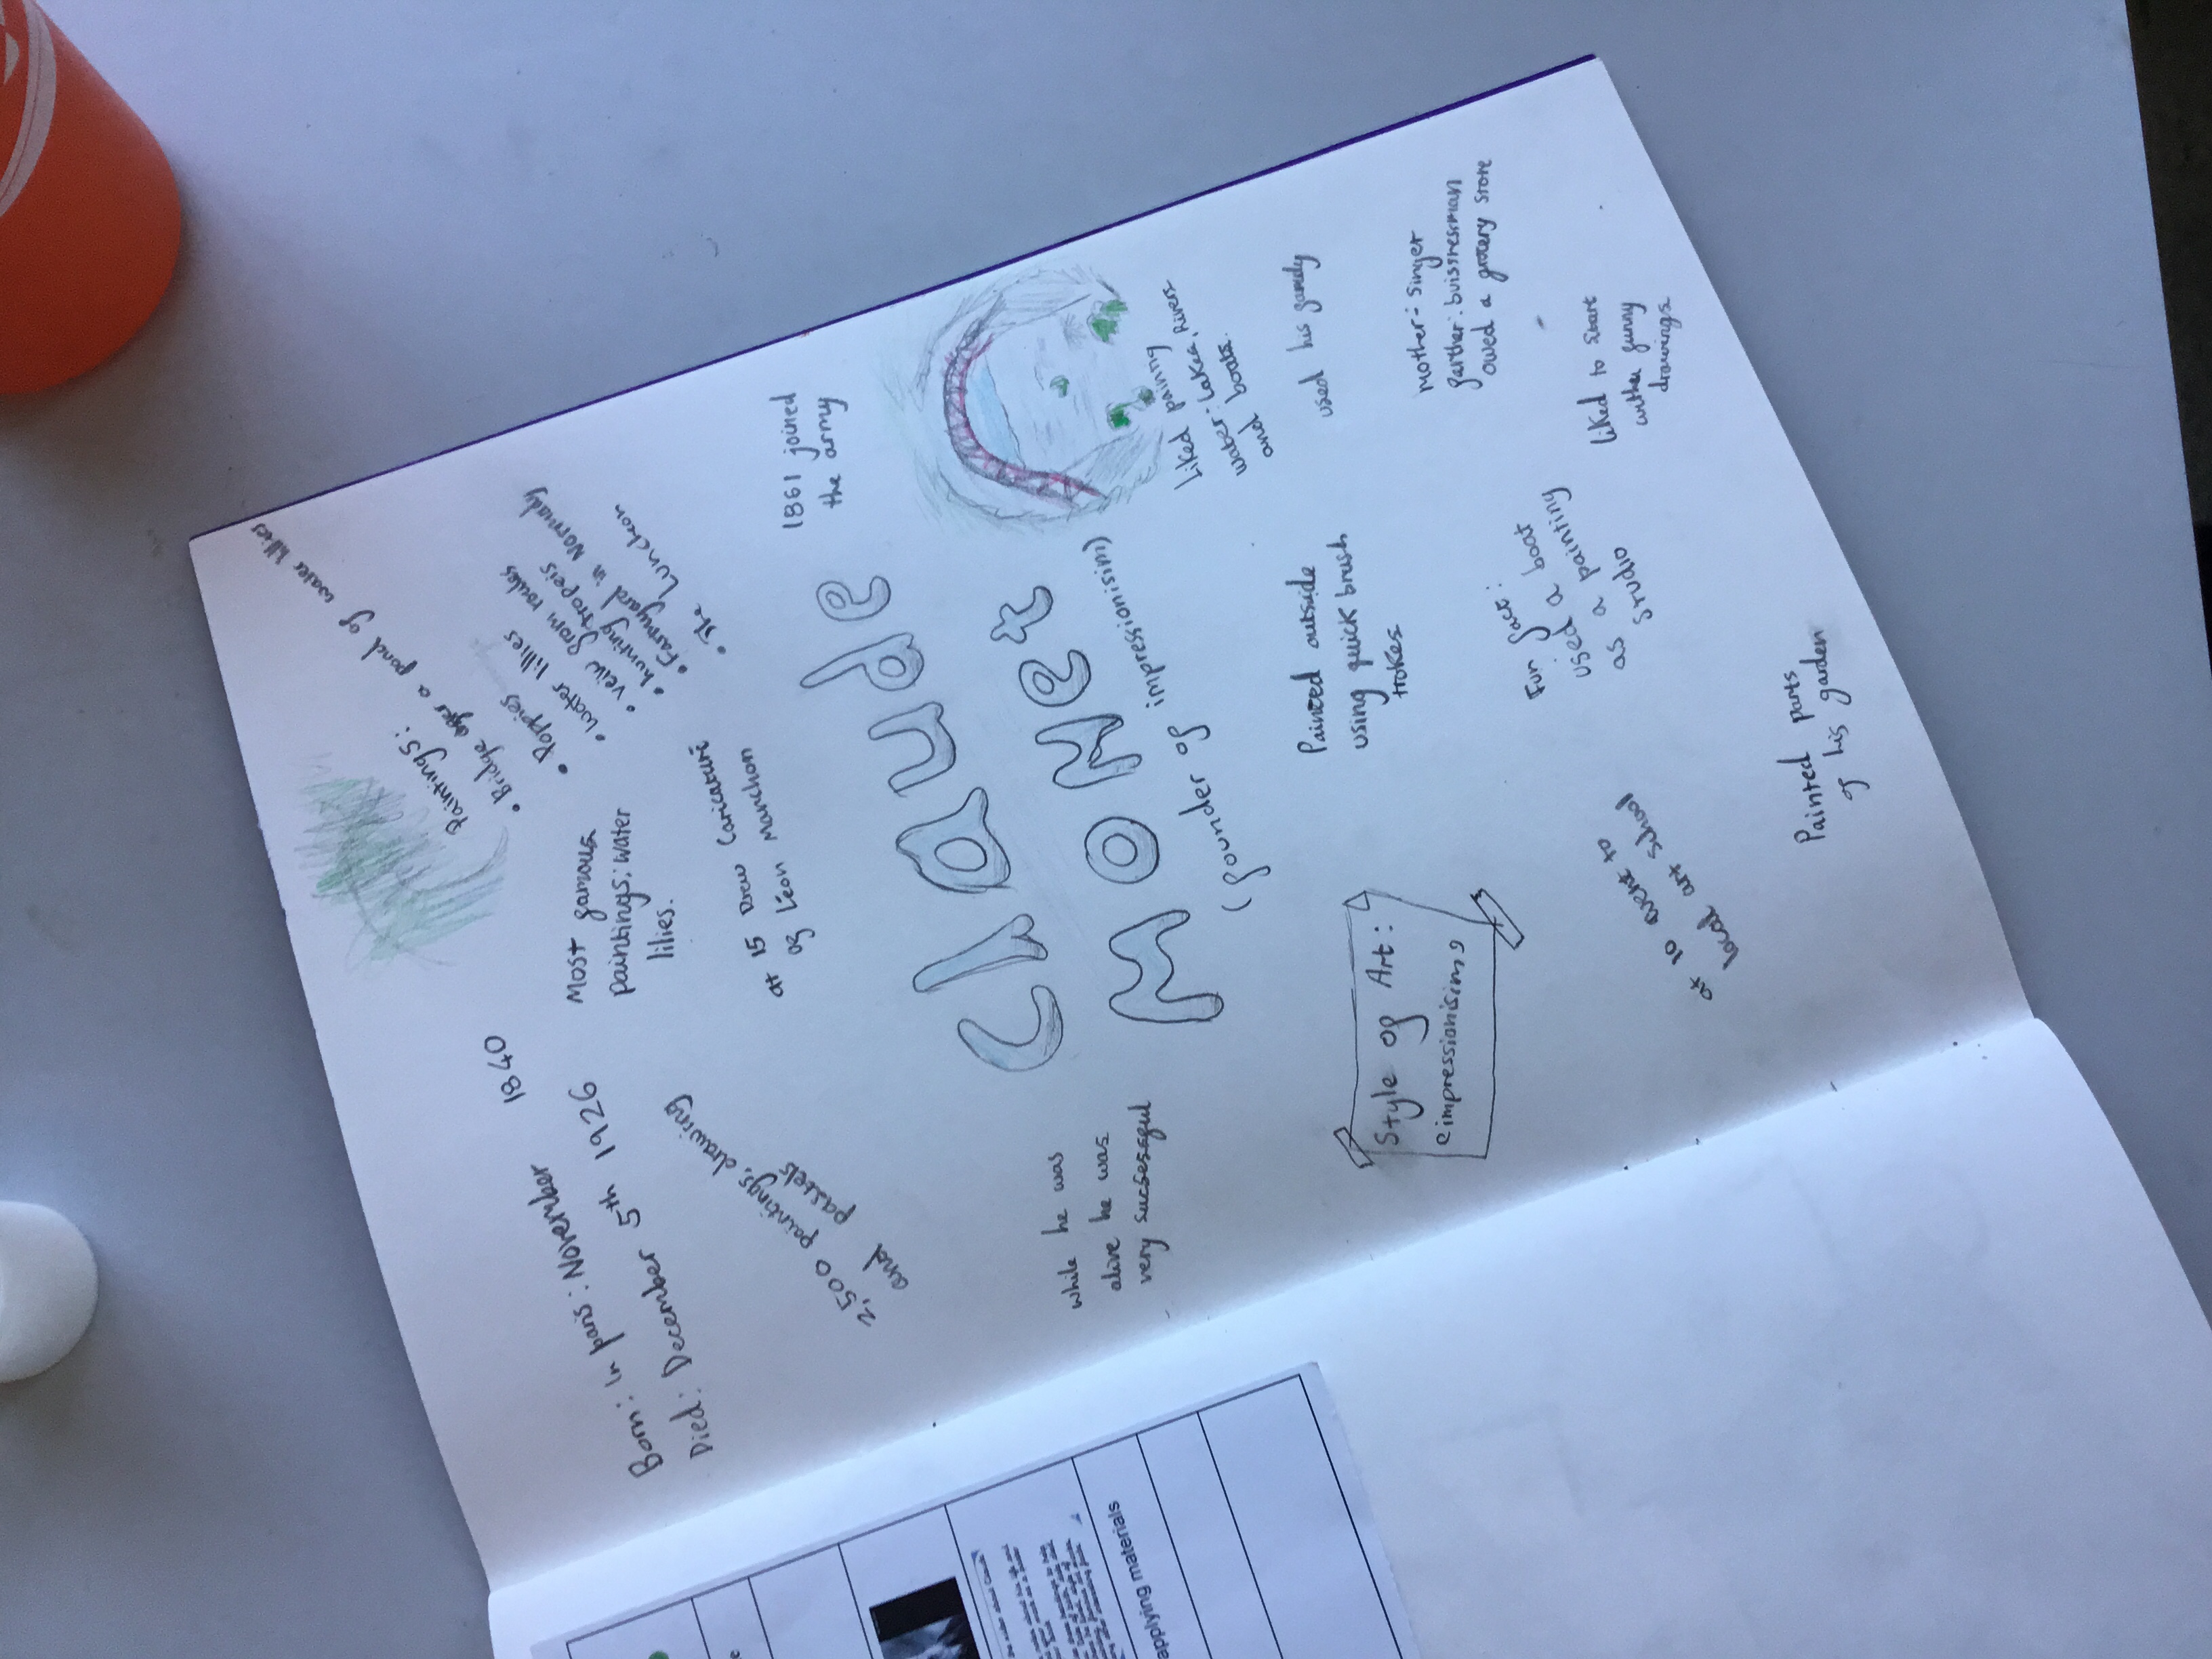 Born: In paris: November
1840
Died: December 5th 1926
2,500 paintings, drawing
and pastels
Most famous
paintings: water
lilies.
Paintings:
• Bridge over a pond of water lillies
• Poppies
• water lillies
• veiw from roules
• hunting tropeis
• Farmyard in Normady
• The Luncheon
at 15 Drew Caricature
of Léon Manchon
1861 joined
the army
Claude
Monet
(founder of impressionisim)
while he was
alive he was
very sucsessful
Liked paining
water: Lakes, Rivers
and boats.
used his family
Painted outside
using quick brush
trokes
Style of Art:
impressionisim,
Mother: Singer
farther: buisnesman
owed a grocery store
Fun fact:
used a boat
as a painting
studio
Liked to start
drawings
at 10 went to
local art school
Painted parts
of his garden
applying materials